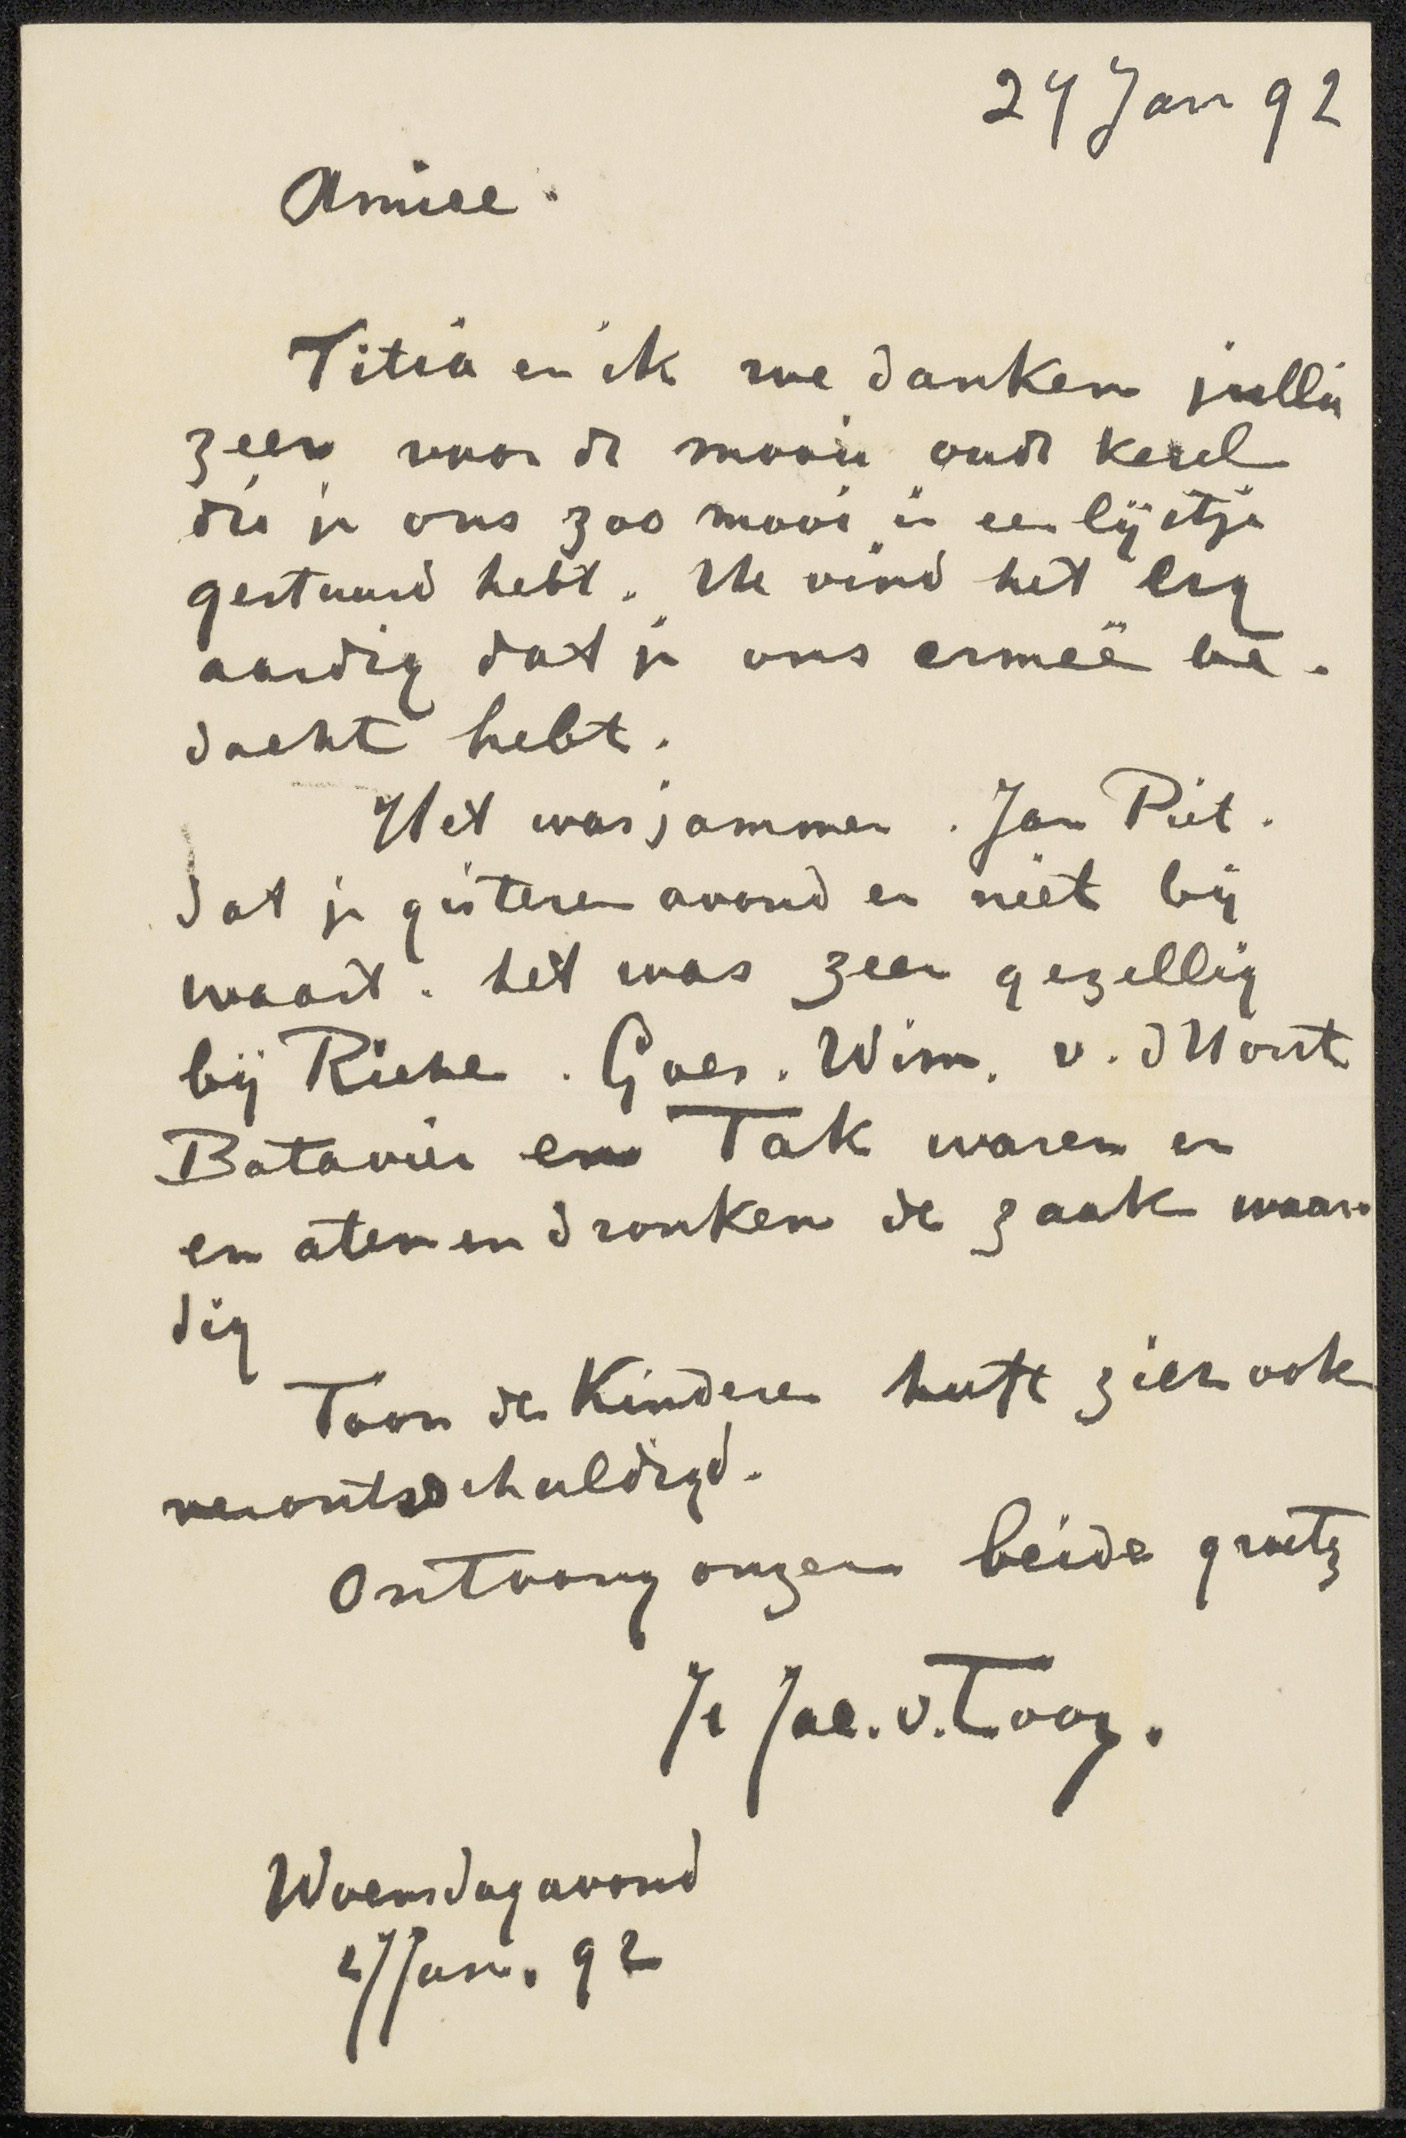 27 Jan 92
Amice.
Titia en ik we danken jullie
zeer voor de mooie oude kerel
die je ons zoo mooi in een lijstje
gestuurd hebt. We vind het erg
aardig dat je ons ermeê be-
dacht hebt.
Het was jammer. Jan Piet.
dat je gisteren avond er niet bij
waart. het was zeer gezellig
bij Riche. Goes. Wism. v. d Horst
Batavier en Tak waren er
en aten en dronken de zaak waar-
dig
Toon der Kinderen heeft zich ook
verontschuldigd.
Ontvang onzer beide groetz
Je Jac. v. Looy.
Woensdagavond
27 Jan. 92